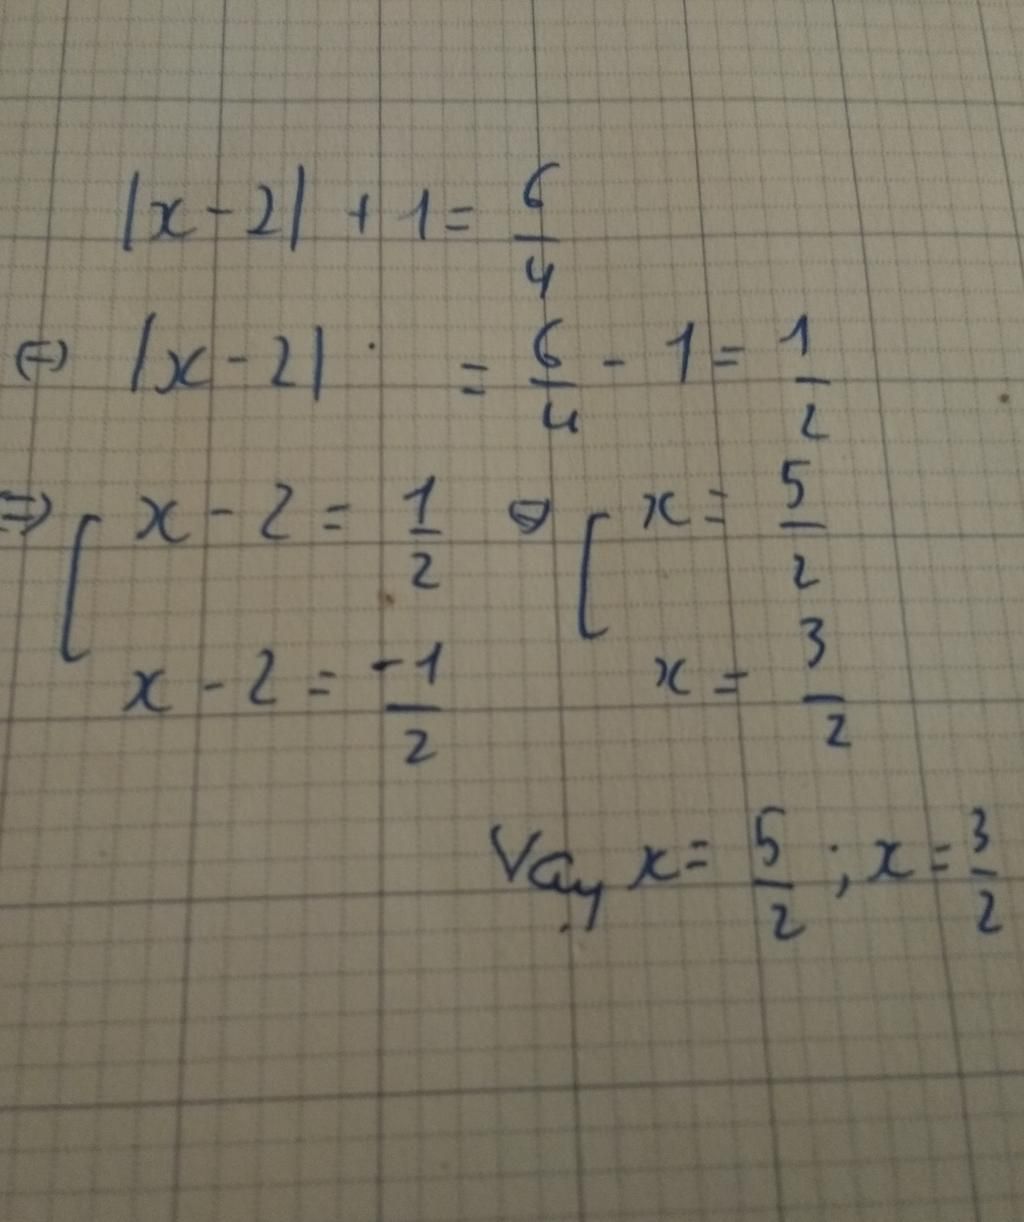 |x - 2| + 1 = 6/4
⇔ |x - 2| = 6/4 - 1 = 1/2
⇔ [ x - 2 = 1/2 ⇔ [ x = 5/2
x - 2 = -1/2 x = 3/2
Vậy x = 5/2 ; x = 3/2